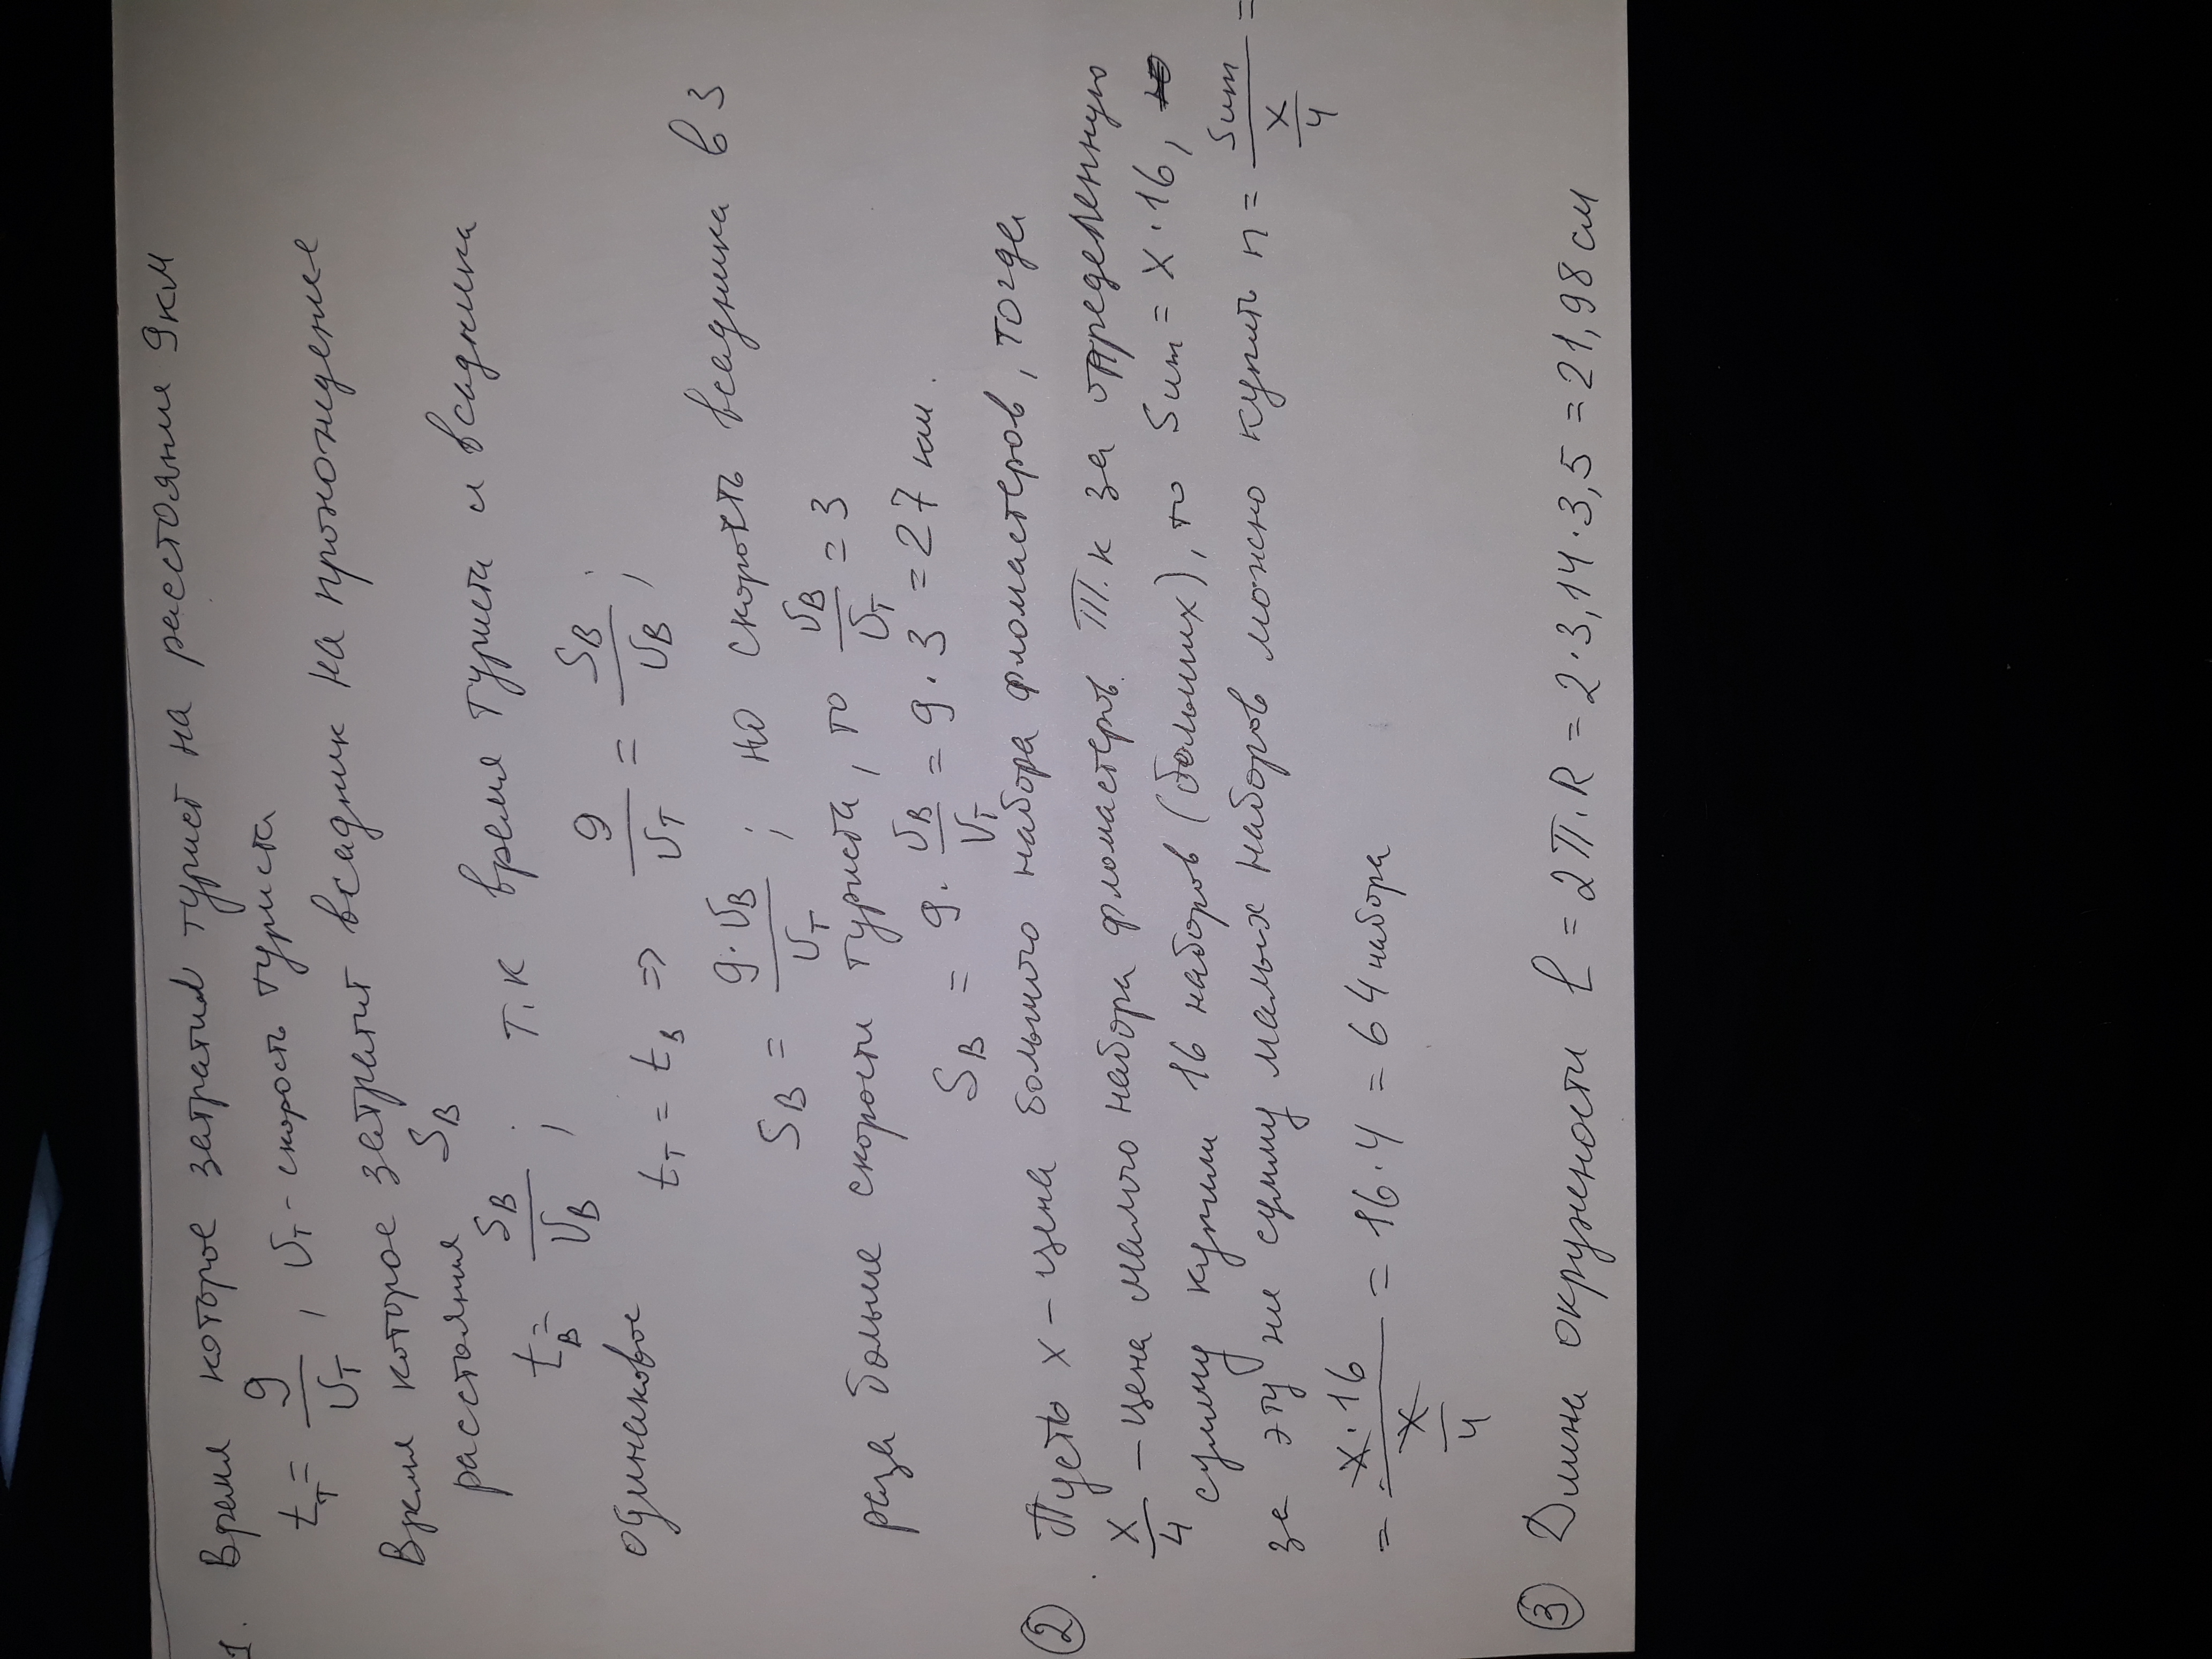 1. Время которое затратил турист на расстояние 9км
t_T = 9/V_T , V_T - скорость туриста
Время которое затратит всадник на прохождение
расстояния S_B
t_B = S_B/V_B ; т.к время туриста и всадника
одинаковое t_T = t_B ⇒ 9/V_T = S_B/V_B ;
S_B = 9·V_B/V_T ; но скорость всадника в 3
раза больше скорости туриста, то V_B/V_T = 3
S_B = 9·V_B/V_T = 9·3 = 27 км.
② Пусть x – цена большого набора фломастеров, тогда
x/4 – цена малого набора фломастеров. Т.к за определенную
сумму купили 16 наборов (больших), то Sum = x·16,
за эту же сумму малых наборов можно купить n = Sum/(x/4) =
= x·16/(x/4) = 16·4 = 64 набора
③ Длина окружности ℓ = 2π·R = 2·3,14·3,5 = 21,98 см